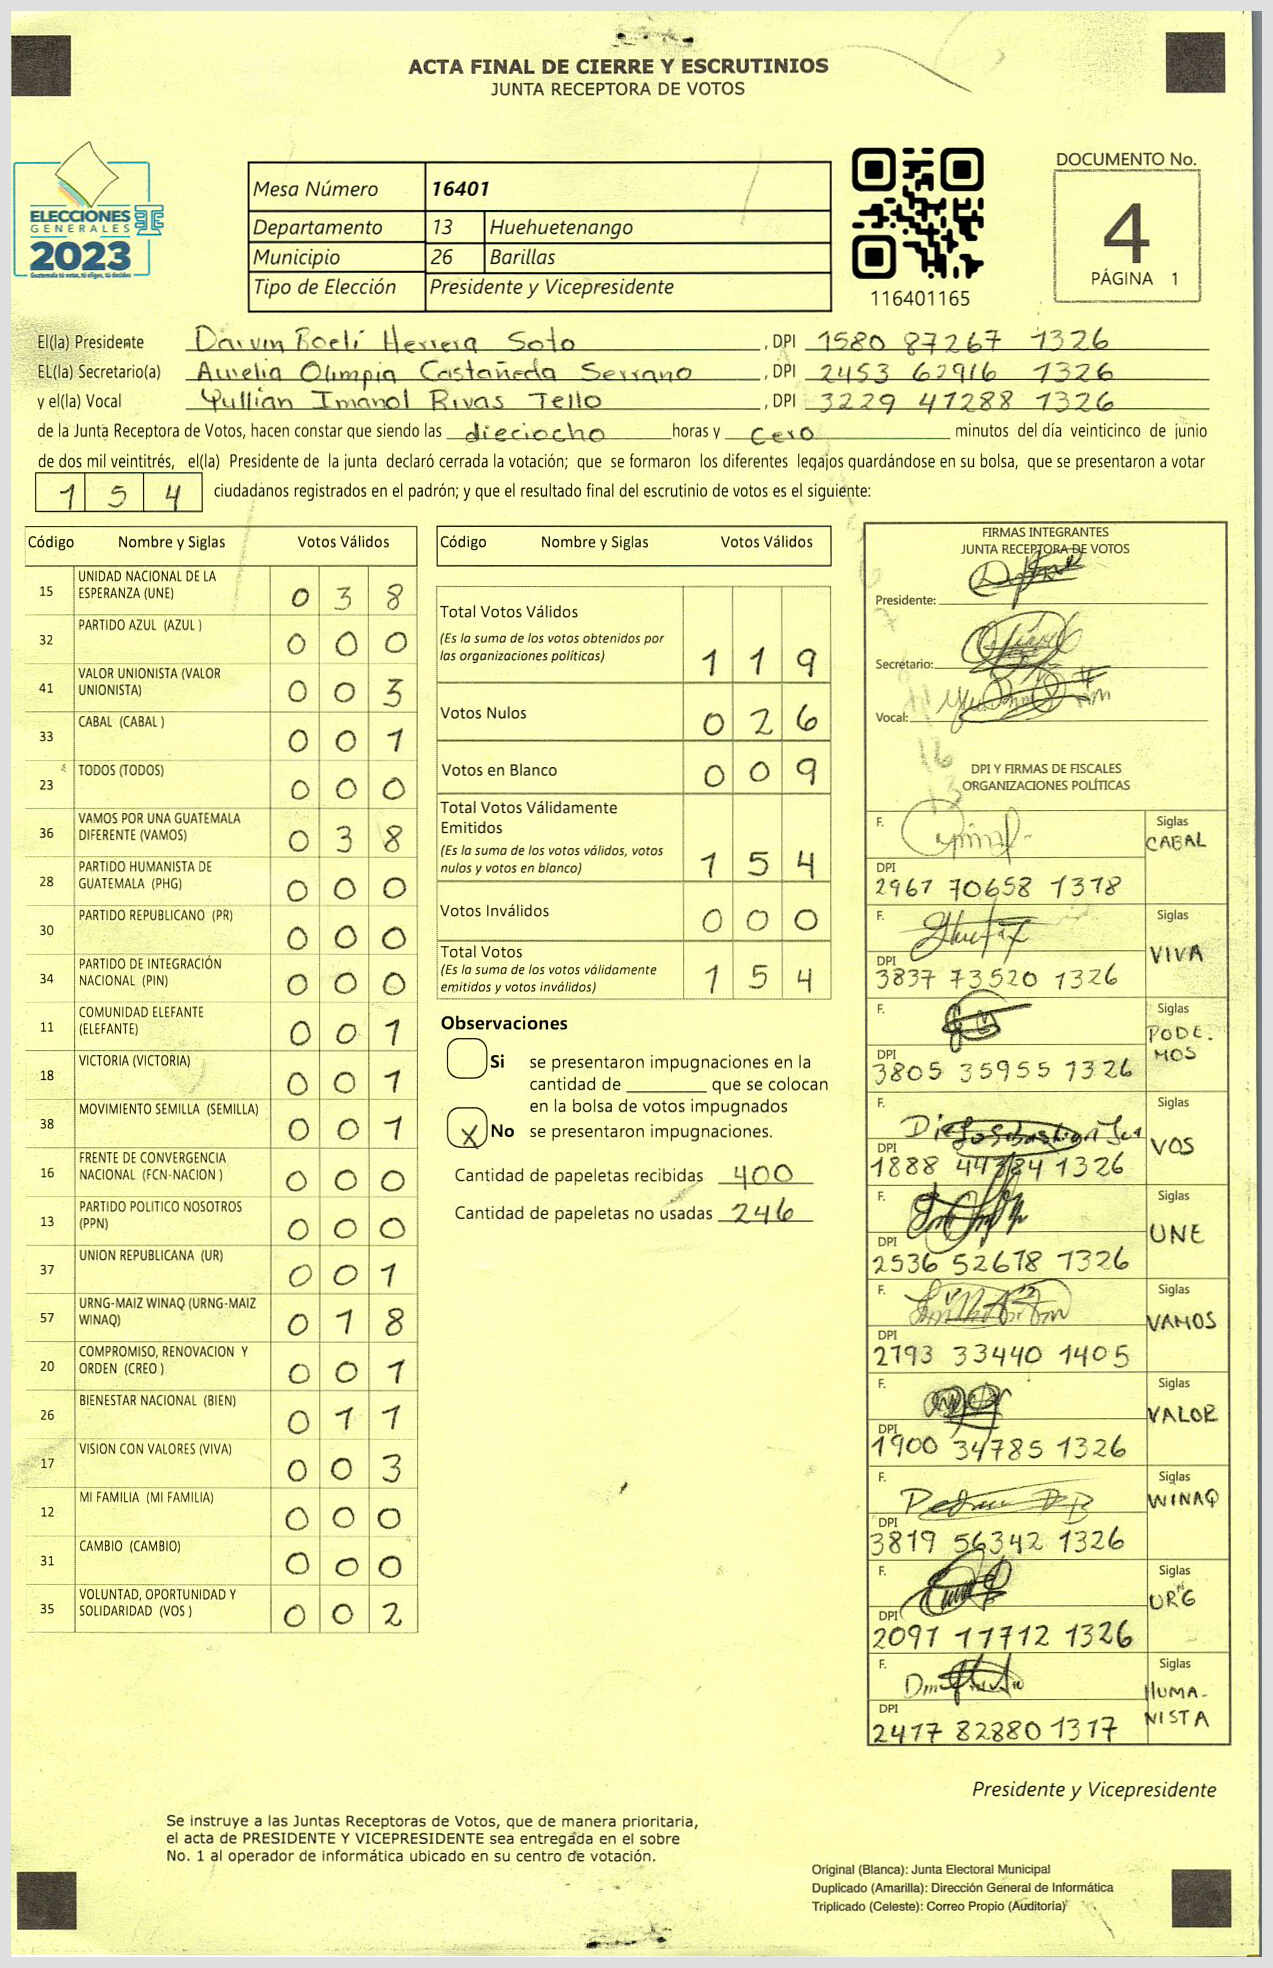 ACTA FINAL DE CIERRE Y ESCRUTINIOS
JUNTA RECEPTORA DE VOTOS
ELECCIONES
GENERALES
2023
Guatemala tú votas, tú eliges, tú decides
Mesa Número 16401
Departamento 13 Huehuetenango
Municipio 26 Barillas
Tipo de Elección Presidente y Vicepresidente
116401165
DOCUMENTO No.
4
PÁGINA 1
El(la) Presidente Darvin Roelí Herrera Soto, DPI 1580 87267 1326
EL(la) Secretario(a) Aurelia Olimpia Castañeda Serrano, DPI 2453 62916 1326
y el(la) Vocal Yullian Imanol Rivas Tello, DPI 3229 41288 1326
de la Junta Receptora de Votos, hacen constar que siendo las dieciocho horas y cero minutos del día veinticinco de junio
de dos mil veintitrés, el(la) Presidente de la junta declaró cerrada la votación; que se formaron los diferentes legajos guardándose en su bolsa, que se presentaron a votar
1 5 4 ciudadanos registrados en el padrón; y que el resultado final del escrutinio de votos es el siguiente:
Código Nombre y Siglas Votos Válidos
15 UNIDAD NACIONAL DE LA
ESPERANZA (UNE) 0 3 8
32 PARTIDO AZUL (AZUL ) 0 0 0
41 VALOR UNIONISTA (VALOR
UNIONISTA) 0 0 3
33 CABAL (CABAL ) 0 0 1
23 TODOS (TODOS) 0 0 0
36 VAMOS POR UNA GUATEMALA
DIFERENTE (VAMOS) 0 3 8
28 PARTIDO HUMANISTA DE
GUATEMALA (PHG) 0 0 0
30 PARTIDO REPUBLICANO (PR) 0 0 0
34 PARTIDO DE INTEGRACIÓN
NACIONAL (PIN) 0 0 0
11 COMUNIDAD ELEFANTE
(ELEFANTE) 0 0 1
18 VICTORIA (VICTORIA) 0 0 1
38 MOVIMIENTO SEMILLA (SEMILLA) 0 0 1
16 FRENTE DE CONVERGENCIA
NACIONAL (FCN-NACION ) 0 0 0
13 PARTIDO POLITICO NOSOTROS
(PPN) 0 0 0
37 UNION REPUBLICANA (UR) 0 0 1
57 URNG-MAIZ WINAQ (URNG-MAIZ
WINAQ) 0 1 8
20 COMPROMISO, RENOVACION Y
ORDEN (CREO ) 0 0 1
26 BIENESTAR NACIONAL (BIEN) 0 1 1
17 VISION CON VALORES (VIVA) 0 0 3
12 MI FAMILIA (MI FAMILIA) 0 0 0
31 CAMBIO (CAMBIO) 0 0 0
35 VOLUNTAD, OPORTUNIDAD Y
SOLIDARIDAD (VOS ) 0 0 2
Código Nombre y Siglas Votos Válidos
Total Votos Válidos
(Es la suma de los votos obtenidos por
las organizaciones políticas) 1 1 9
Votos Nulos 0 2 6
Votos en Blanco 0 0 9
Total Votos Válidamente
Emitidos
(Es la suma de los votos válidos, votos
nulos y votos en blanco) 1 5 4
Votos Inválidos 0 0 0
Total Votos
(Es la suma de los votos válidamente
emitidos y votos inválidos) 1 5 4
Observaciones
Si se presentaron impugnaciones en la
cantidad de ________ que se colocan
en la bolsa de votos impugnados
X No se presentaron impugnaciones.
Cantidad de papeletas recibidas 400
Cantidad de papeletas no usadas 246
FIRMAS INTEGRANTES
JUNTA RECEPTORA DE VOTOS
Presidente:
Secretario:
Vocal:
DPI Y FIRMAS DE FISCALES
ORGANIZACIONES POLÍTICAS
F. Siglas
CABAL
DPI
2967 70658 1318
F. Siglas
VIVA
DPI
3837 73520 1326
F. Siglas
PODE-
MOS
DPI
3805 35955 1326
F. Siglas
VOS
DPI
1888 44384 1326
F. Siglas
UNE
DPI
2536 52678 1326
F. Siglas
VAMOS
DPI
2793 33440 1405
F. Siglas
VALOR
DPI
1900 34785 1326
F. Siglas
WINAQ
DPI
3819 56342 1326
F. Siglas
URNG
DPI
2091 17712 1326
F. Siglas
HUMA-
NISTA
DPI
2417 82880 1317
Presidente y Vicepresidente
Se instruye a las Juntas Receptoras de Votos, que de manera prioritaria,
el acta de PRESIDENTE Y VICEPRESIDENTE sea entregada en el sobre
No. 1 al operador de informática ubicado en su centro de votación.
Original (Blanca): Junta Electoral Municipal
Duplicado (Amarilla): Dirección General de Informática
Triplicado (Celeste): Correo Propio (Auditoría)